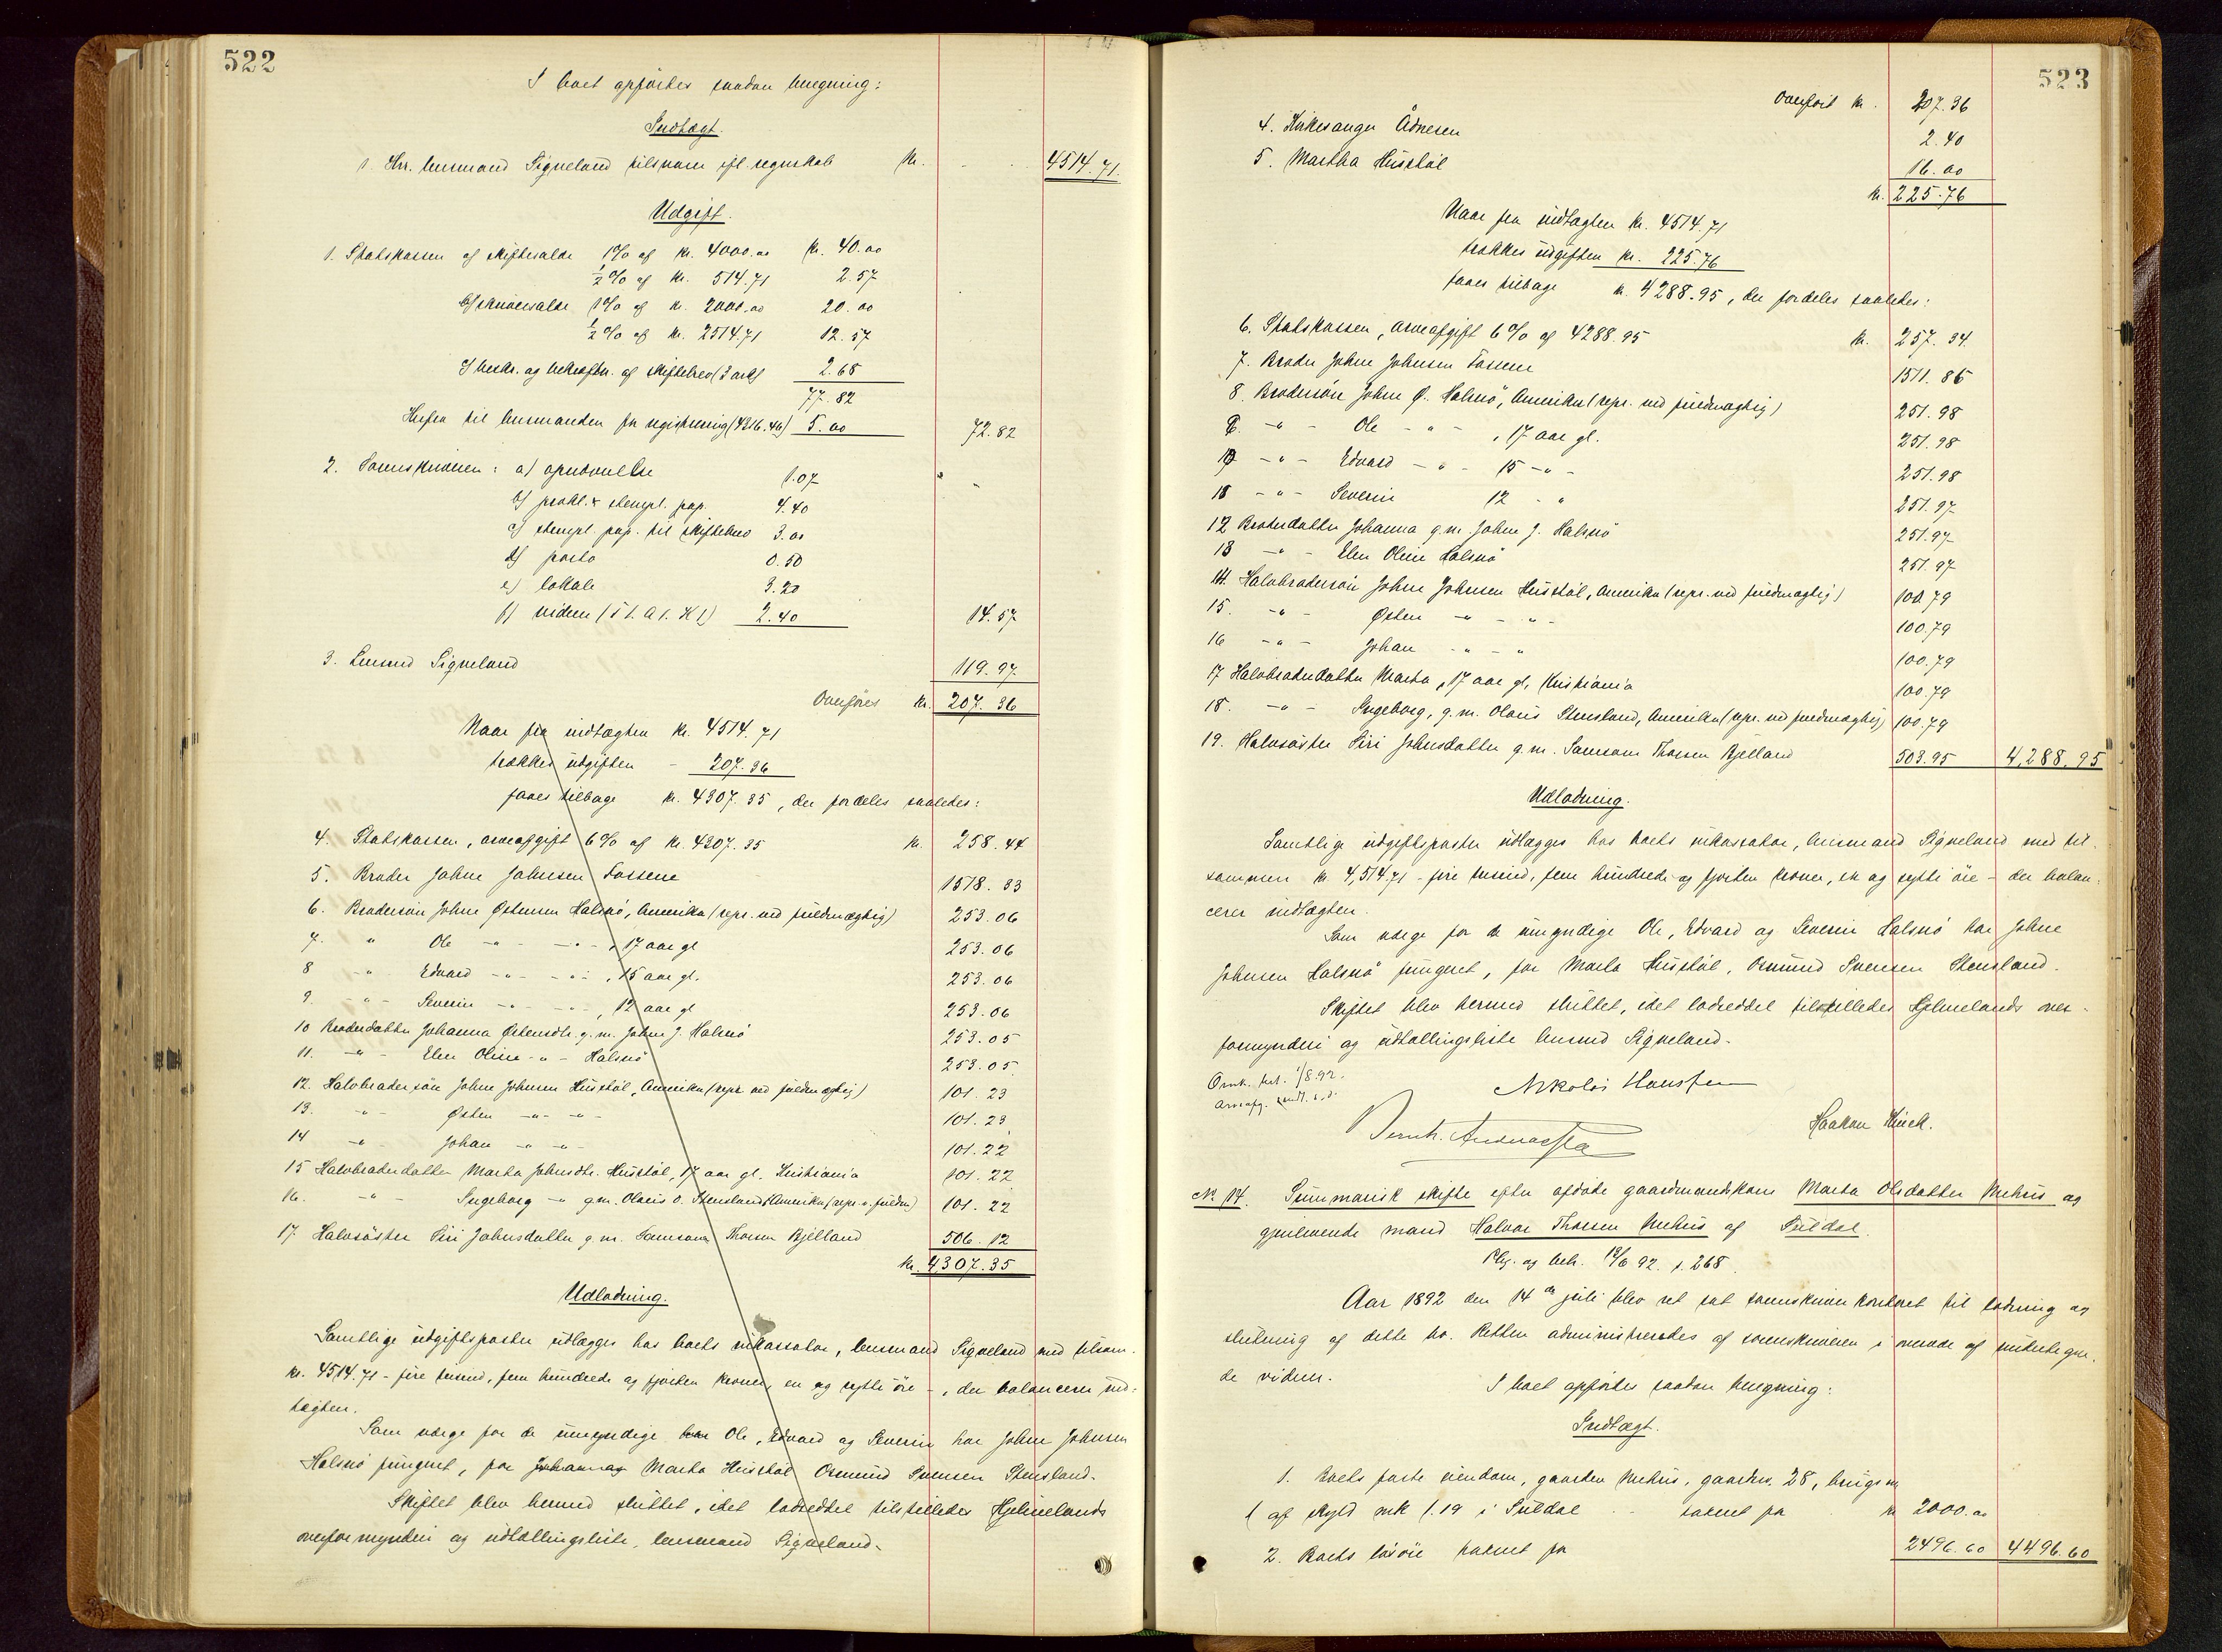 522
I boet opførtes saadan beregning:
Indtægt.
1. Hr. lensmand Signeland tilsvarer efl. regnskab kr. 4514.71.
Udgift.
1. Statskassen a) skiftesalær 1% af kr. 4000.00 kr. 40.00
½% af kr. 514.71 2.57
b) skriversalær 1% af kr. 2000.00 20.00
½% af kr. 2514.71 12.57
c) beskr. og bekræftn. af skiftebrev (3 ark) 2.68
77.82
Herfra til lensmanden for registrering (4316.46) 5.00 72.82
2. Sorenskriveren: a) opnævnelse 1.07
b) prokl. & stempl. pap. 4.40
c) stempl. pap. til skiftebrev 3.00
d) porto 0.50
e) lokale 3.20
f) vidner 2.40 14.57
3. Lensmd Signeland 119.97
Overføres kr. 207.36
Naar fra indtægten kr. 4514.71
trækkes udgiften - 207.36
faaes tilbage kr. 4307.35, der fordeles saaledes:
4. Statskassen, arveafgift 6% af kr. 4307.35 kr. 258.44
5. Broder Johne Johnsen Fossene 1518.33
6. Brodersøn Johne Østensen Halsnø, Amerika (repr. ved fuldmægtig) 253.06
7. " Ole -"- -"-, 17 aar gl 253.06
8 -"- Edvard -"- -"-, 15 aar gl. 253.06
9. -"- Severin -"- -"-, 12 aar gl 253.06
10 Broderdatter Johanna Østensdtr. g. m. Johne J. Halsnø 253.05
11. -"- Elen Oline -"- Halsnø 253.05.
12. Halvbrodersøn Johne Johnsen Hustøl, Amerika (repr. ved fuldmægtig) 101.23
13. -"- Østen -"- -"- 101.23
14 -"- Johan -"- -"- 101.22
15 Halvbroderdatter Marta Johnsdtr. Hustøl, 17 aar gl. Kristiania 101.22
16. -"- Ingeborg -"- g.m. Olaus O. Stensland, Amerika (repr. v. fuldm) 101.22
17. Halvsøster Siri Johnsdatter g. m. Samson Thorsen Bjelland 506.12
kr. 4307.35
Udlodning.
Samtlige udgiftsposter udlægges hos boets inkassator, lensmand Signeland med tilsam-
kr. 4514.71 - fire tusind, fem hundrede og fjorten kroner, en og sytti øre -, der balancerer ind-
tægten.
Som værge for de umyndige har Ole, Edvard og Severin har Johne Johnsen
Halsnø fungeret, for Johanna og Marta Hustøl Osmund Svensen Stensland.
Skiftet blev hermed sluttet, idet lodseddel tilstilledes Hjelmelands
overformynderi og udtællingsliste, lensmand Signeland.
523
Overført kr. 207.36
4. Kirkesanger Ådnesen 2.40
5. Martha Hustøl 16.00
kr. 225.76
Naar fra indtægten kr. 4514.71
trækkes udgiften kr. 225.76
faaes tilbage kr. 4288.95, der fordeles saaledes:
6. Statskassen, arveafgift 6% af 4288.95 kr. 257.34
7. Broder Johne Johnsen Fossene 1511.86
8. Brodersøn Johne Ø. Halsnø, Amerika (repr. ved fuldmægtig) 251.98
9. -"- Ole -"-, 17 aar gl. 251.98
10 -"- Edvard -"- 15 -"- 251.98
11 -"- Severin 12 -" 251.97
12 Broderdatter Johanna g.m. Johne J. Halsnø 251.97
13 -"- Elen Oline Halsnø 251.97
14. Halvbrodersøn Johne Johnsen Hustøl, Amerika (repr. ved fuldmægtig) 100.79
15. -"- Østen -"- -"- 100.79
16 -"- Johan -"- -" 100.79
17 Halvbroderdatter Marta, 17 aar gl, Kristiania 100.79
18. -"- Ingeborg, g.m. Olaus Stensland, Amerika (repr. ved fuldmægtig) 100.79
19. Halvsøster Siri Johnsdatter g.m. Samson Thorsen Bjelland 503.95 4,288.95
Udlodning.
Samtlige udgiftsposter udlægges hos boets inkassator, lensmand Signeland med til-
sammen kr. 4,514.71 - fire tusind, fem hundrede og fjorten kroner, en og sytti øre - der balan-
cerer indtægten.
Som værge for de umyndige Ole, Edvard og Severin Halsnø har Johne
Johnsen Halsnø fungeret, for Marta Hustøl, Osmund Svensen Stensland.
Skiftet blev hermed sluttet, idet lodseddel tilstilledes Hjelmelands over-
formynderi og udtællingsliste lensmd Signeland.
1/8.92.
Arveafg. sendt s.d.
Nikolai Hansen
Haakon Hinck.
No 14. Summarisk skifte efter afdøde gaardmandskone Marta Olsdatter Mehus og
gjenlevende mand Halvor Thorsen Mehus af Suldal.
Reg. og beh. 18/6 92. s. 268.
Aar 1892 den 14de juli blev ret sat sorenskriverkontoret til lodning og
slutning af dette bo. Retten administreredes af sorenskriveren i overvær af undertegne-
de vidner.
I boet opførtes saadan beregning:
Indtægt.
1. Boets faste eiendom, gaarden Mehus, gaardsn. 28, brugsn
1 af skyld mk 1.19 i Suldal takseret for kr 2000.00
2. Boets løsøre takseret for 2496.60 4496.60